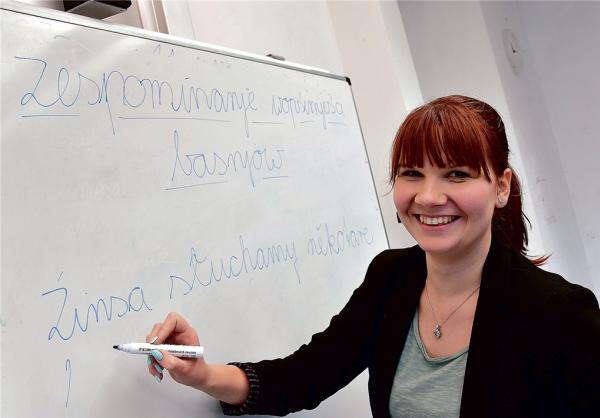 Zespominanje wopśimjeśa
basnjow
Źinsa słuchamy někotare